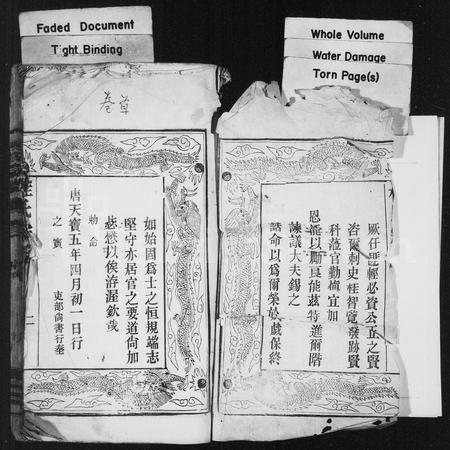 Faded Document
Tight Binding
Whole Volume
Water Damage
Torn Page(s)
草卷
厥任匪輕必資公正之賢
咨爾刺史桂智覽發跡賢
科蒞官勤慎宜加
恩寵以顯良能茲特進爾階
諫議大夫錫之
誥命以為爾榮於戲保終
如始固為士之恒規端志
堅守亦居官之要道尚加
懋以俟洊渥欽哉
勅命
唐天寶五年四月初一日行
之寶
吏部尚書行奉
二